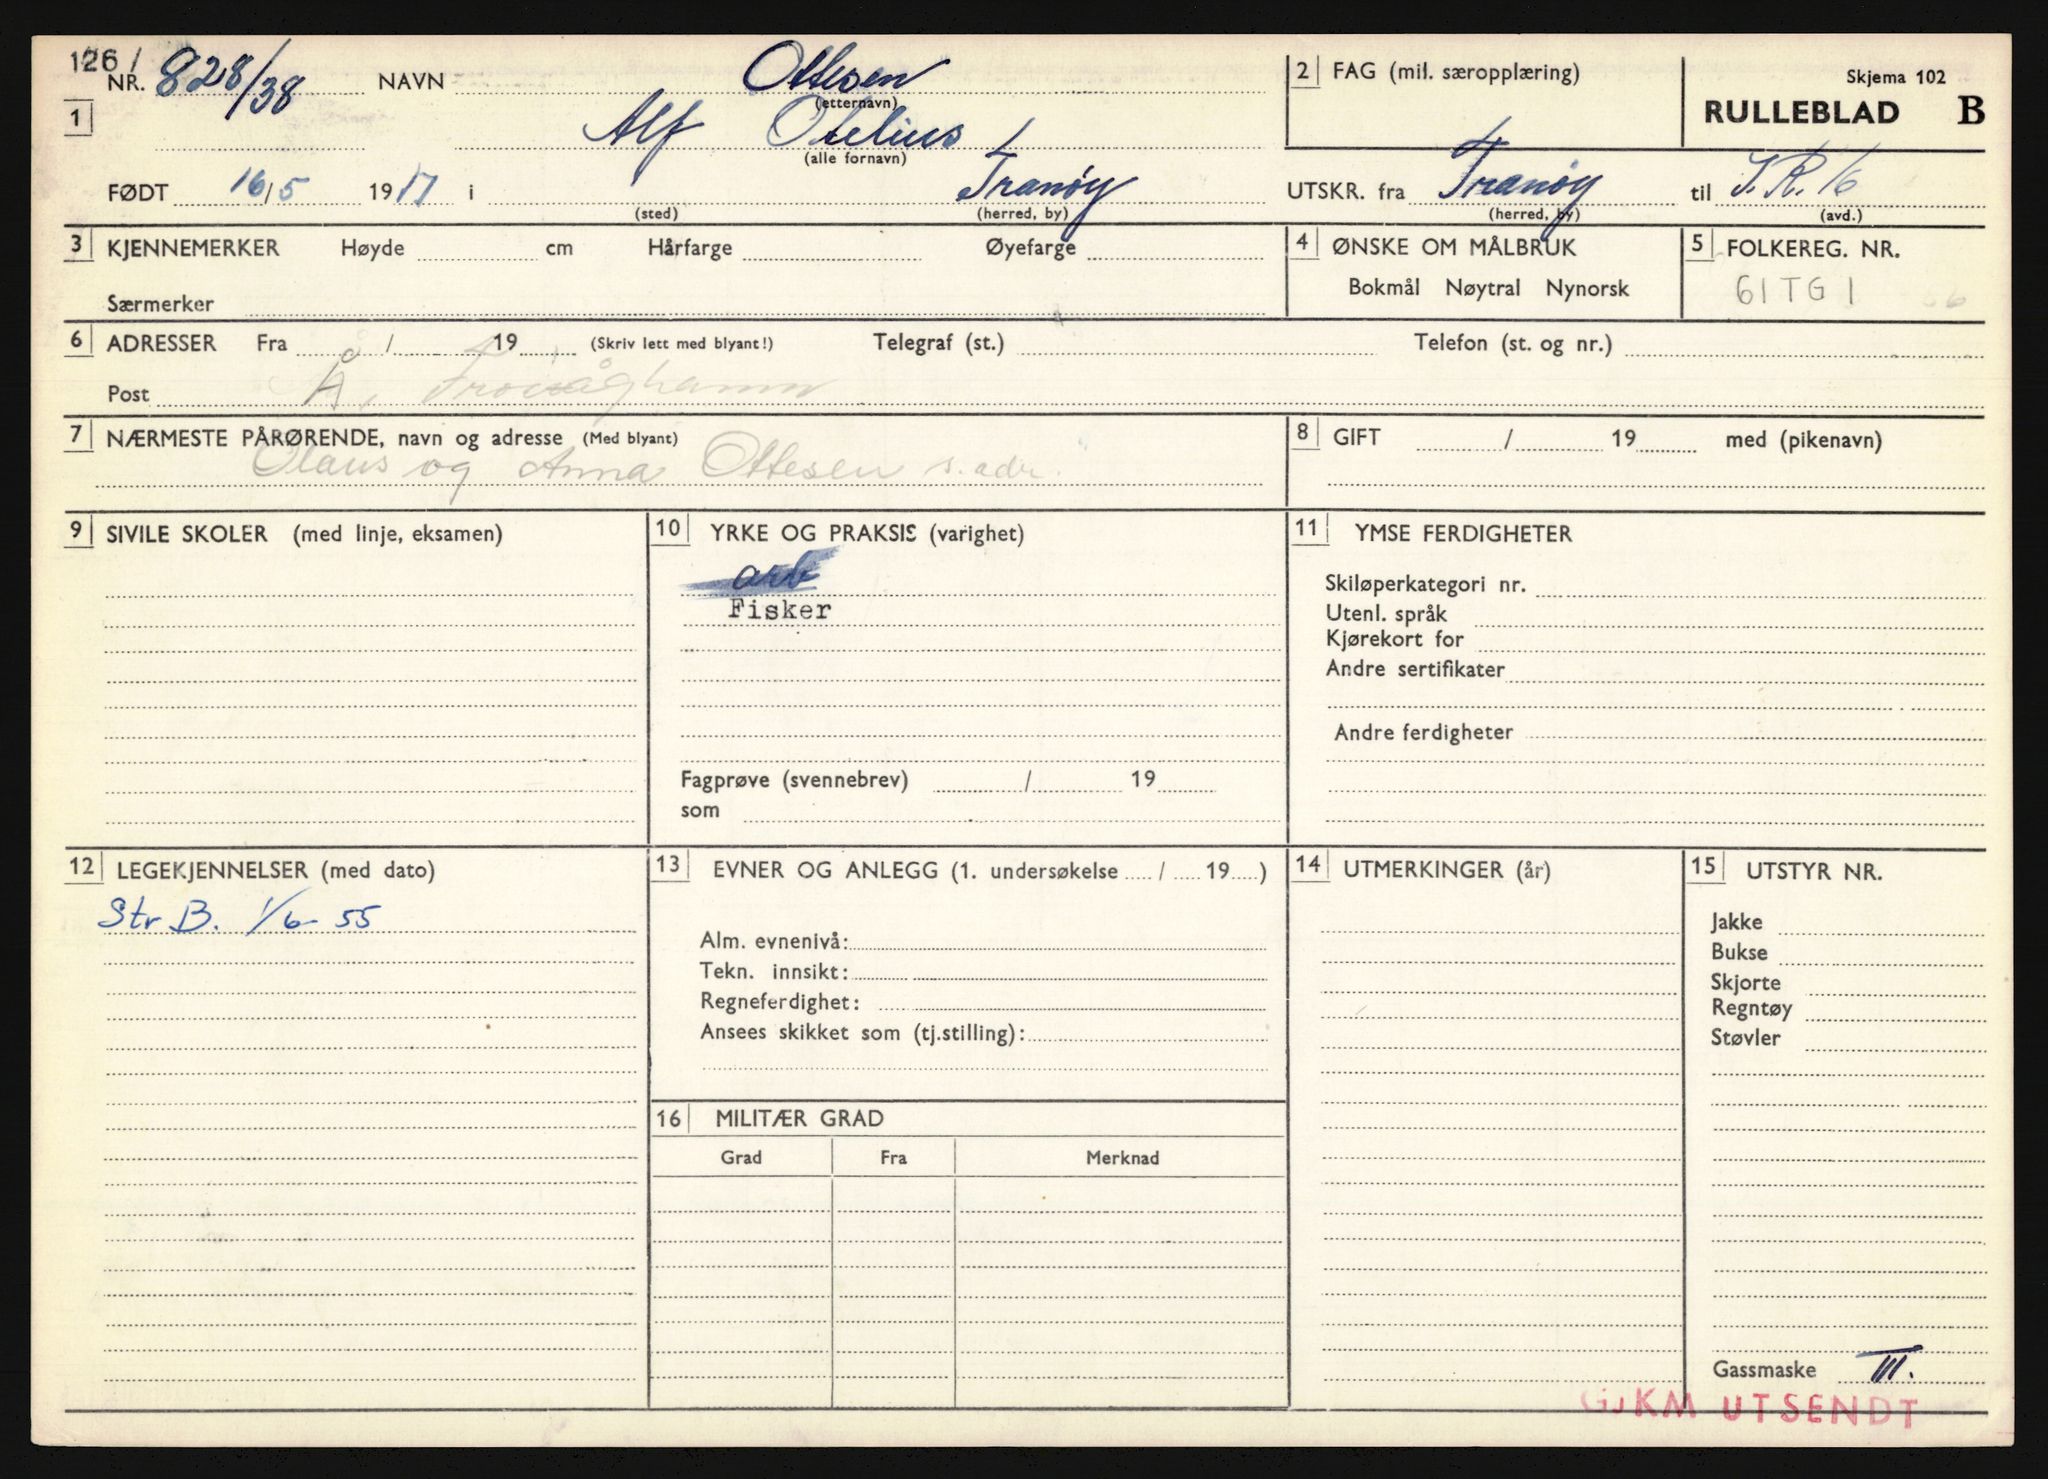 126/
NR. 828/38 NAVN Ottesen
(etternavn)
1
Alf Otelius
(alle fornavn)
FØDT 16/5 1917 i Tranøy
(sted) (herred, by)
2 FAG (mil. særopplæring)
Skjema 102
RULLEBLAD B
UTSKR. fra Tranøy til I.R. 16
(herred, by) (avd.)
3 KJENNEMERKER Høyde cm Hårfarge Øyefarge
Særmerker
4 ØNSKE OM MÅLBRUK
Bokmål Nøytral Nynorsk
5 FOLKEREG. NR.
61TG1
6 ADRESSER Fra / 19 (Skriv lett med blyant!) Telegraf (st.) Telefon (st. og nr.)
Post Å,
7 NÆRMESTE PÅRØRENDE, navn og adresse (Med blyant)
Olaus og Anna Ottesen s. adr.
8 GIFT / 19 med (pikenavn)
9 SIVILE SKOLER (med linje, eksamen)
10 YRKE OG PRAKSIS (varighet)
arb
Fisker
Fagprøve (svennebrev) / 19
som
11 YMSE FERDIGHETER
Skiløperkategori nr.
Utenl. språk
Kjørekort for
Andre sertifikater
Andre ferdigheter
12 LEGEKJENNELSER (med dato)
Str B. 1/6 55
13 EVNER OG ANLEGG (1. undersøkelse / 19 )
Alm. evnenivå:
Tekn. innsikt:
Regneferdighet:
Ansees skikket som (tj.stilling):
16 MILITÆR GRAD
Grad Fra Merknad
14 UTMERKINGER (år)
15 UTSTYR NR.
Jakke
Bukse
Skjorte
Regntøy
Støvler
Gassmaske III.
UTSENDT